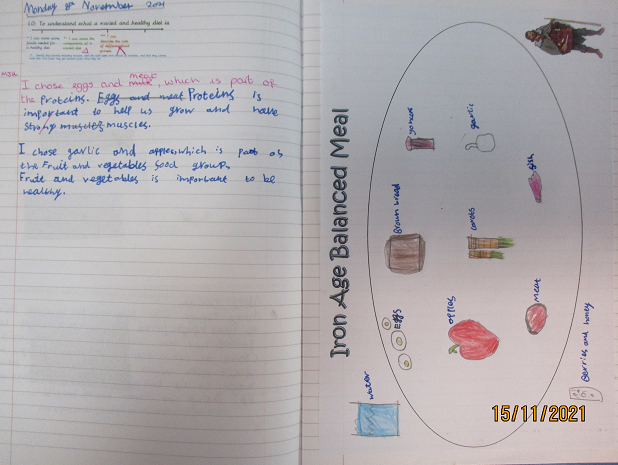 Monday 8th November 2021
LO: To understand what a varied and healthy diet is
MSH
I chose eggs and meat, which is part of
the Proteins. Eggs and meat Proteins is
important to help us grow and have
strong muscles muscles.
I chose garlic and apples, which is part of
the Fruit and vegetables food group.
Fruit and vegetables is important to be
healthy.
Iron Age Balanced Meal
garlic
fish
Brown bread
carots
Eggs
apples
meat
water
Berries and honey
15/11/2021